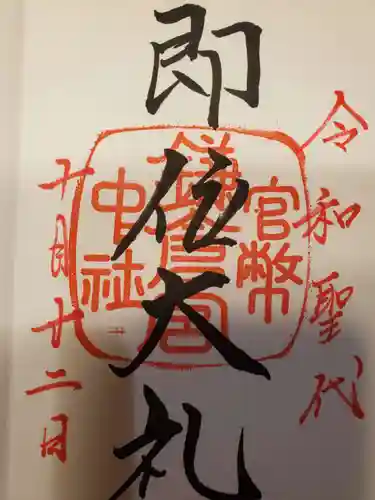 令和聖代
即位大礼
十月廿二日
官幣
鎌倉宮
中社